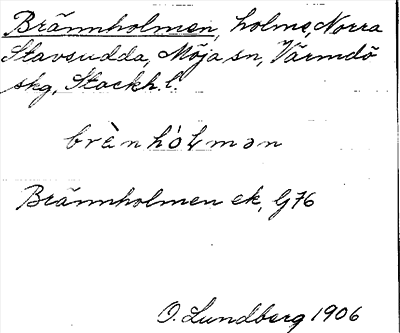 Brännholmen, holme, Norra
Stavsudda, Möja sn, Värmdö
skg, Stockh. l.
brènhólmən
Brännholmen ek, G76
O. Lundberg 1906